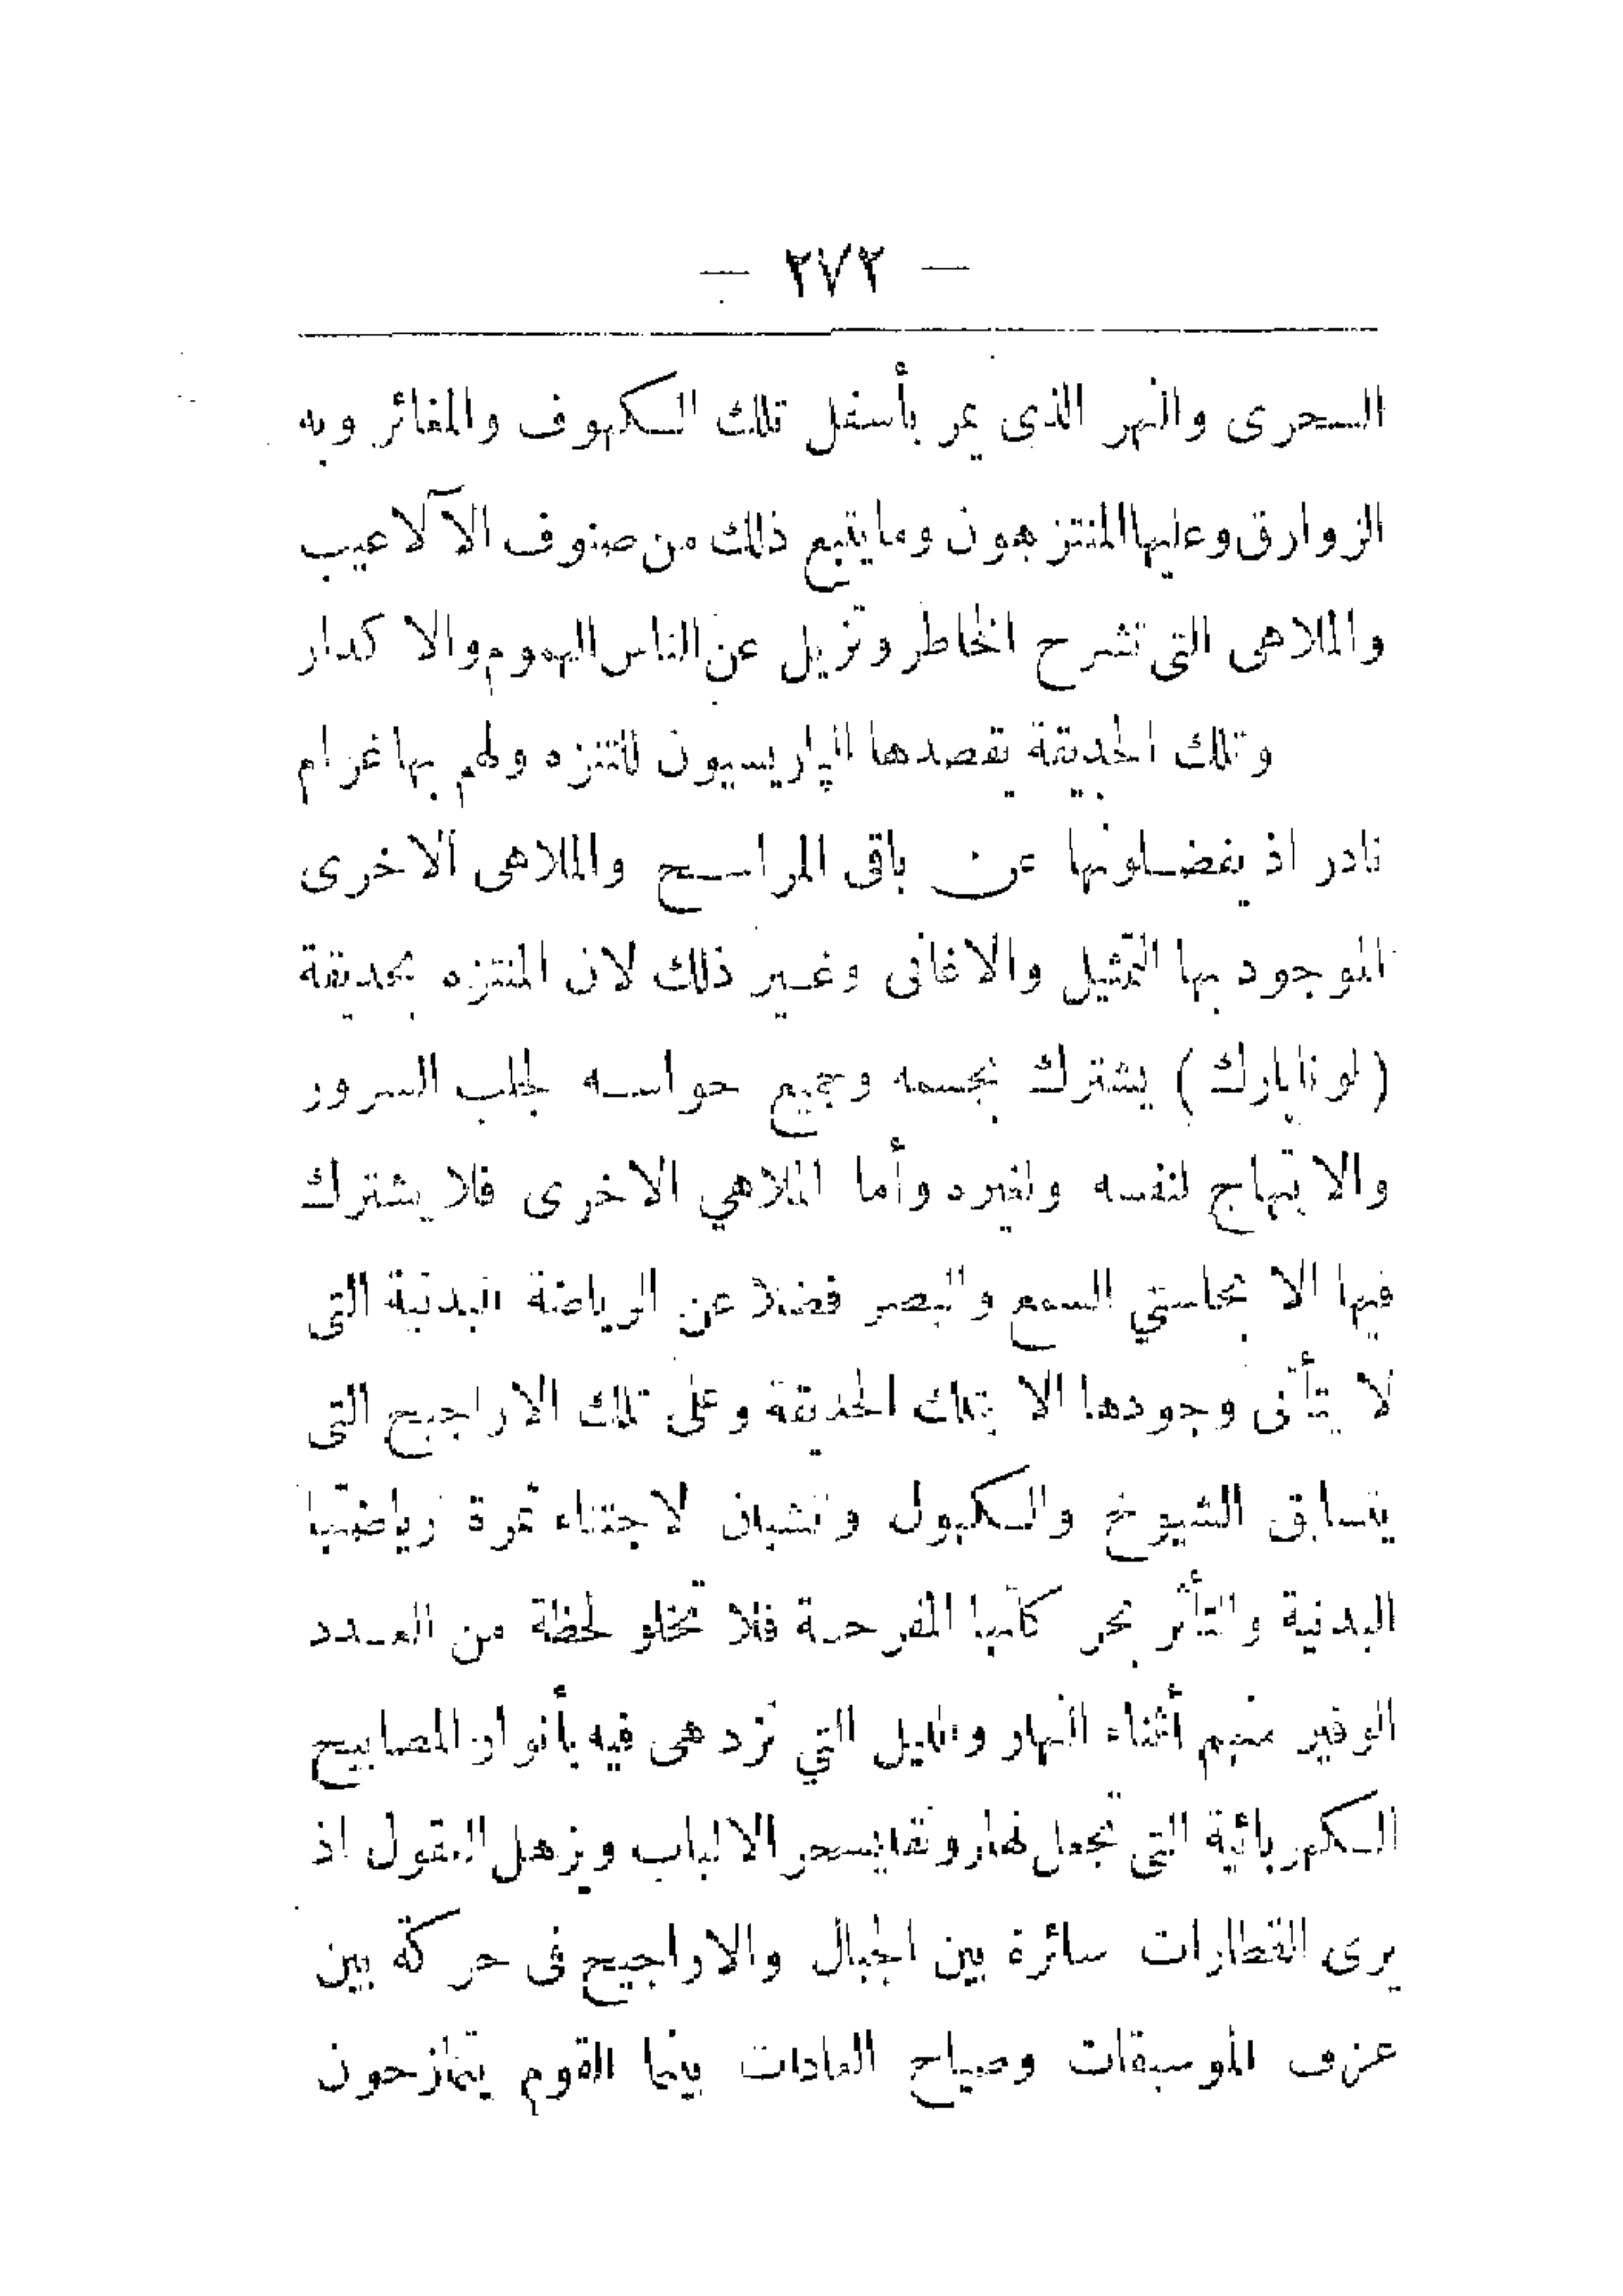 — ٢٧٢ —
السحرى والنهر الذى يمر بأسفل تلك الكهوف والمغائر وبه
الزوارق وعليها المنتزهون وما يتبع ذلك من صنوف الآلاعيب
والملاهى التى تشرح الخاطر وتزيل عن الناس الهموم والاكدار
وتلك الحديقة يقصدها الپاريسيون للتنزه ولهم بها غرام
نادر اذ يفضلونها عن باقى المراسح والملاهى الاخرى
الموجود بها التمثيل والاغانى وغير ذلك لان المنتزه بحديقة
(لونا پارك) يشترك بجسمه وبجميع حواسه لجلب السرور
والابتهاج لنفسه ولغيره وأما الملاهي الاخرى فلا يشترك
فيها الا بحاستي السمع والبصر فضلا عن الرياضة البدنية التى
لا يتأتى وجودها الا بتلك الحديقة وعلى تلك الاراجيح التى
يتسابق الشيوخ والكهول والشبان لاجتناء ثمرة رياضتها
البدنية والتأثر بحركاتها المفرحة فلا تخلو لحظة من العدد
الوفير منهم أثناء النهار والليل التي تزدهى فيه بأنوار المصابيح
الكهربائية التى تجعل لها رونقا يسحر الالباب ويزهل العقول اذ
يرى القطارات سائرة بين الجبال والاراجيح فى حركة بين
عزف الموسيقات وصياح الغادات بينما القوم يتمازحون